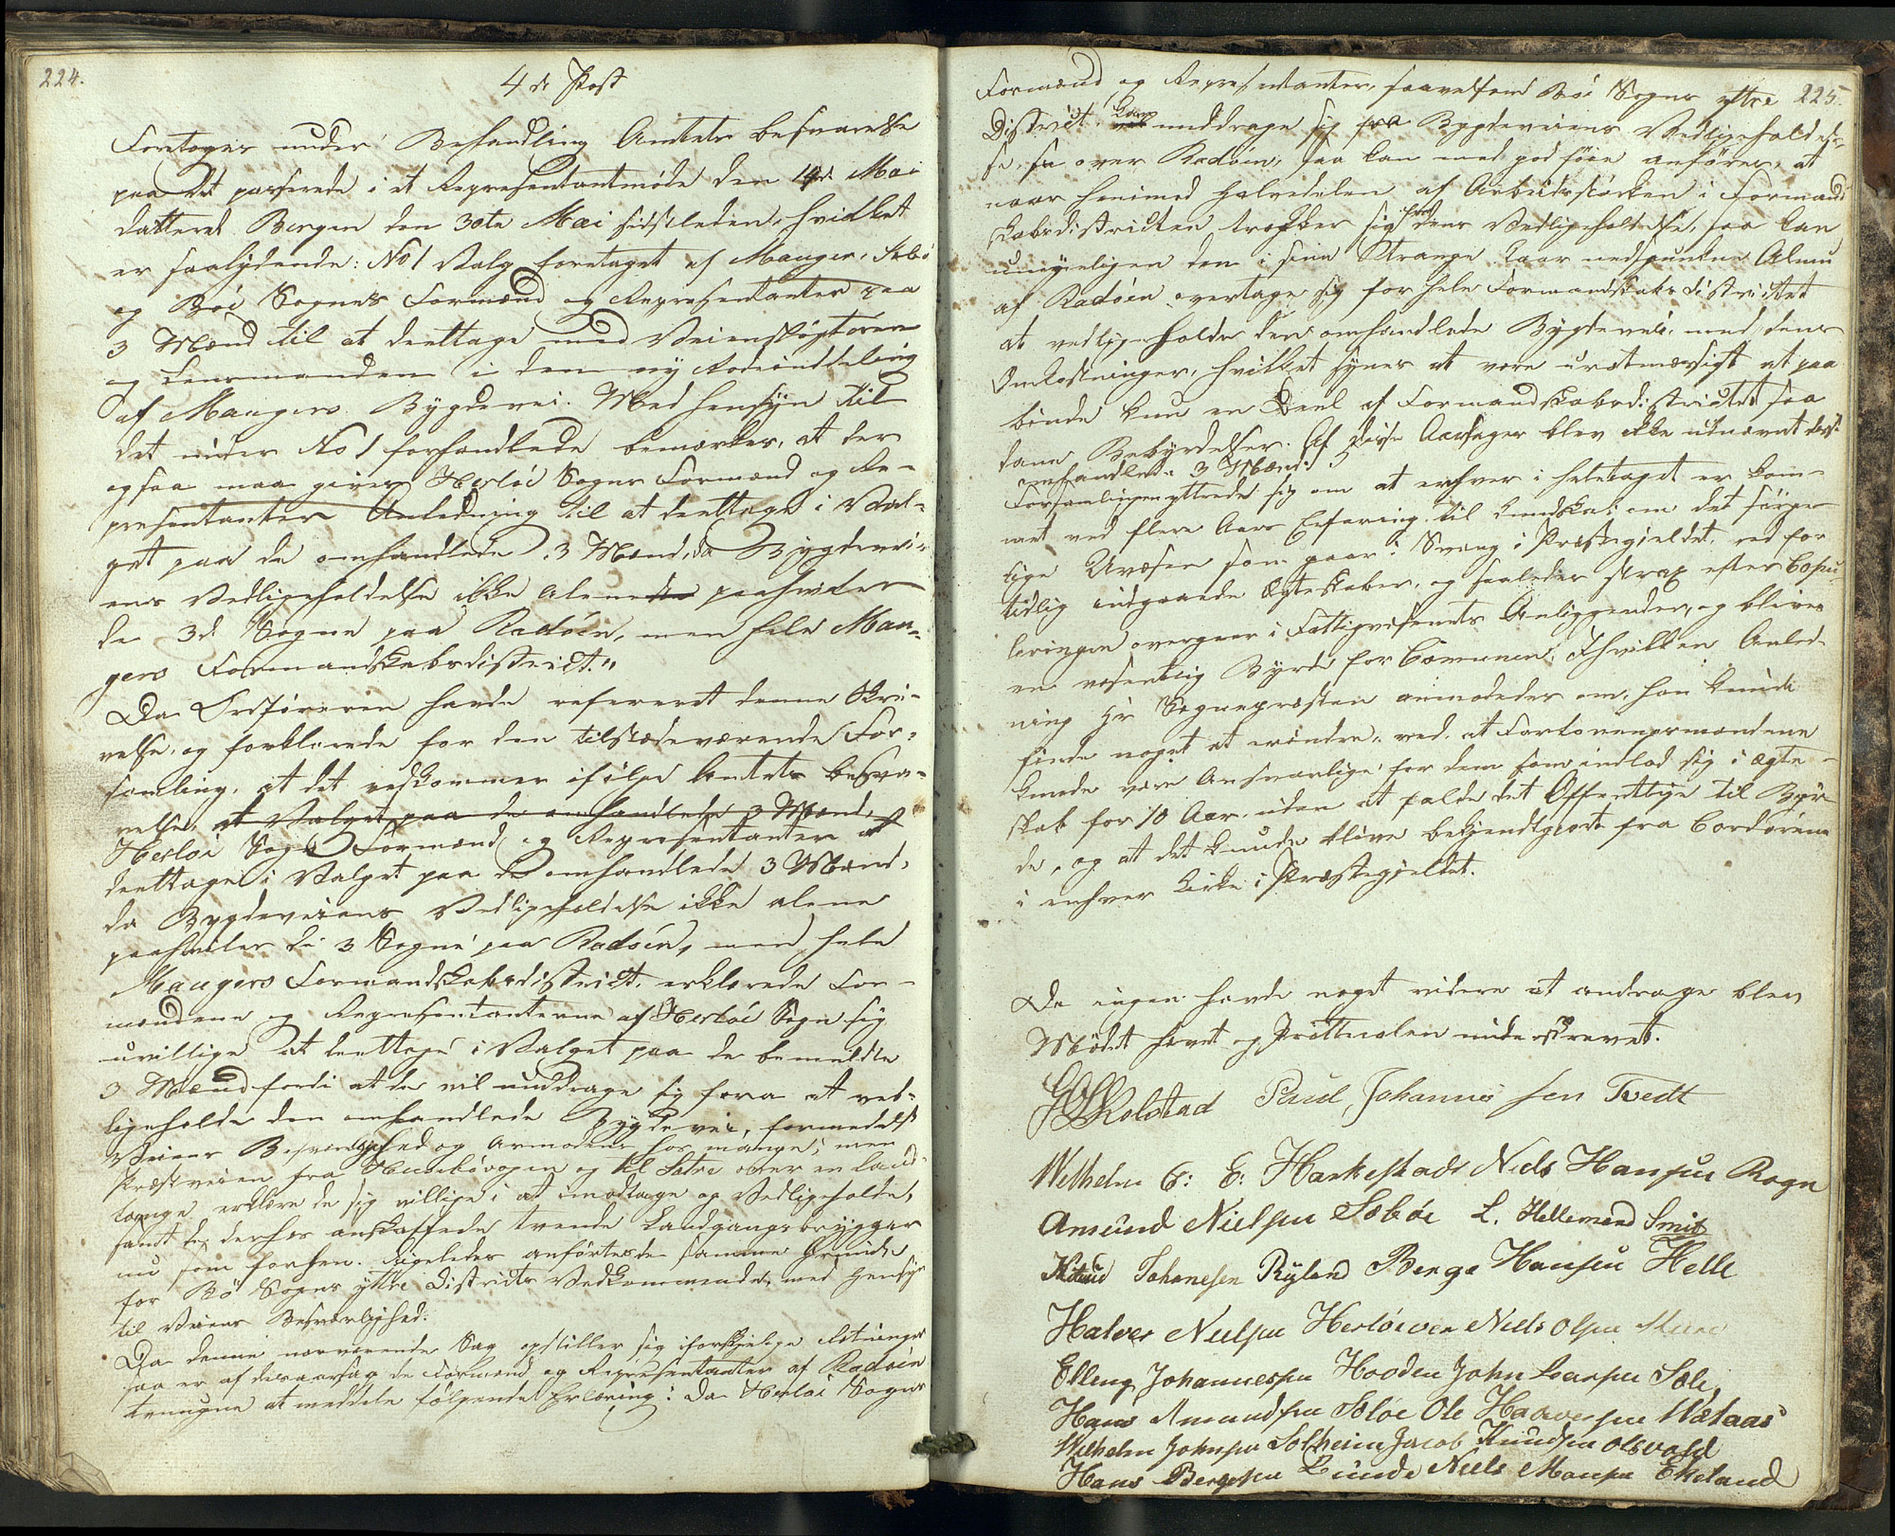 224.
4de Post
Foretoges under Behandling Amtets Besvarelse
paa det passerede i et Repræsentantmøde den 14de Mai
datteret Bergen den 30te Mai sidstleden, hvilket
er saalydende: No 1 Valg foretaget af Manger, Sæbø
og Bøe Sognes Formænd og Repræsentanter paa
3 Mænd til at deeltage med Veiinspögtören
og Lensmanden i den ny Rodeinddeling
af Mangers Bygdevei. Med Hensÿn til
det under No 1 forhandlede bemærkes, at der
ogsaa maa gives Herløe Sogns Formænd og Re-
præsentanter Anledning til at deeltage i Val-
get paa de omhandlede 3 Mænd, da Bygdevei-
ens Vedligeholdelse ikke alene paahviler
de 3de Sogne paa Radöen, men hele Man-
gers Formandskabsdistrict."
Da Ordføreren havde refereret denne Skri-
velse, og forklarede for den tilstædeværende For-
samling, at det vedkommer ifölge Amtets Besva-
relse, at Valget paa de omhandlede 3 Mænd, af
Herløe Sogns Formænd og Repræsentanter at
deeltage i Valget paa de omhandlede 3 Mænd,
da Bygdeveiens Vedligeholdelse ikke alene
paahviler de 3 Sogne paa Radöen, men hele
Mangers Formandskabsdistrict, erklærede For-
mændene og Repræsentanterne af Herløe Sogn sig
uvillige at deeltage i Valget paa de bemeldte
3 Mænd fordi at de vil unddrage sig fora at ved-
ligeholde den omhandlede Bygdevei, formedelst
Veiens Besværlighed og Armodens hos mange; men
Præstveien fra og til Sætre over en Land-
tange, erklære de sig villige i at imodtage og Vedligeholde,
samt de derhos anskaffede tvende Landgangsbrÿggar
nu som forhen. Ligeledes anførtes de samme Grunde
for Bö Sogns ÿttre Districts Vedkommende, med Hensÿn
til Veiens Besværlighed.
Da denne nærværende Sag opstiller sig i forskjelige Retninger
saa er af de Formænd og Repræsentanter af Radöen
at meddele følgende Erklæring: Da Herløe Sogns
225.
Formænd og Repræsentanter, saavelsom Böe Sogns ÿttre
District kan unddrage sig fra Bygdeveiens Vedligeholdel-
se, over Radöen, saa kan med god föie anföres, at
naar henimod Halvedelen af Arbeidsstocken i Formand
skabsdistrictet trækker sig fra dens Vedligeholdelse, saa kan
umueligen den i sine Strange Kaar nedsjunkne Almue
af Radöen overtage sig for hele Formandskabsdistrictet
at vedligeholde den omhandlede Bygdevei, med dens
Omkostninger, hvilket synes at være uretmæssigt at paa
binde kun en Deel af Formandskabsdistrictet saa
dane Bebyrdelser. Af disse Aarsager blev ikke udnævnt disse
omhandlede 3 Mænd.
Forsamlingen yttrede sig om at enhver i heletaget er kom-
met ved flere Aars Erfaring til Kundskab om det sörge-
lige Uvæsen som gaar i Svang i Præstegjeldet, ved for
tidlig indgaaede Ægteskaber, og saaledes strax efter Copu
leringen overgaar i Fattigvæsenets Anliggender, og bliver
en væsentlig Byrde for Comunen; I hvilken Anled-
ning Hr Sognepræsten anmodedes om, han kunde
finde noget at erindre, ved, at Forlovningsmændene
kunde være Ansvarlige for dem som indlod sig i ægte-
skab for 10 Aar, uden at falde det Offentlige til Bÿr
de, og at det kunde blive bekjendtgjort fra Cordören
i enhver Kirke i Præstegjeldet.
Da ingen havde noget videre at andrage blev
Mödet hævet og Prottocolen underskrevet.
Kolstad Paul Johannes sen Tvedt
Wilhelm C: E: Harkestads Niels Hansen Rogn
Amund Nielsen Sæböe L. Hellemend Smit
Knud Johanesen Rÿland Berge Hansen Helle
Halver Nielsen Herløeven Niels Olsen
Elling Johannessen Hooden John Larsen Sæle
Hans Amundsen Sæløe Ole Haaversen Wætaas
Wilhelm Johnsen Solheim Jacob Knudsen Olsvold
Hans Bergesen Lunde Niels Monsen Ekeland